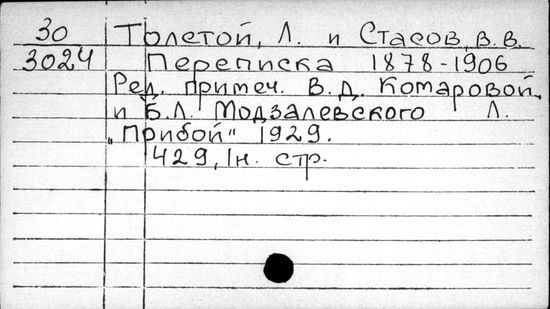 30 Толстой, Л. и Стасов, В.В.
3024 Переписка 1878-1906
Ред. примеч. В.Д. Комаровой
и Б.Л. Модзалевского Л.
„Прибой" 1929.
429, 1н. стр.